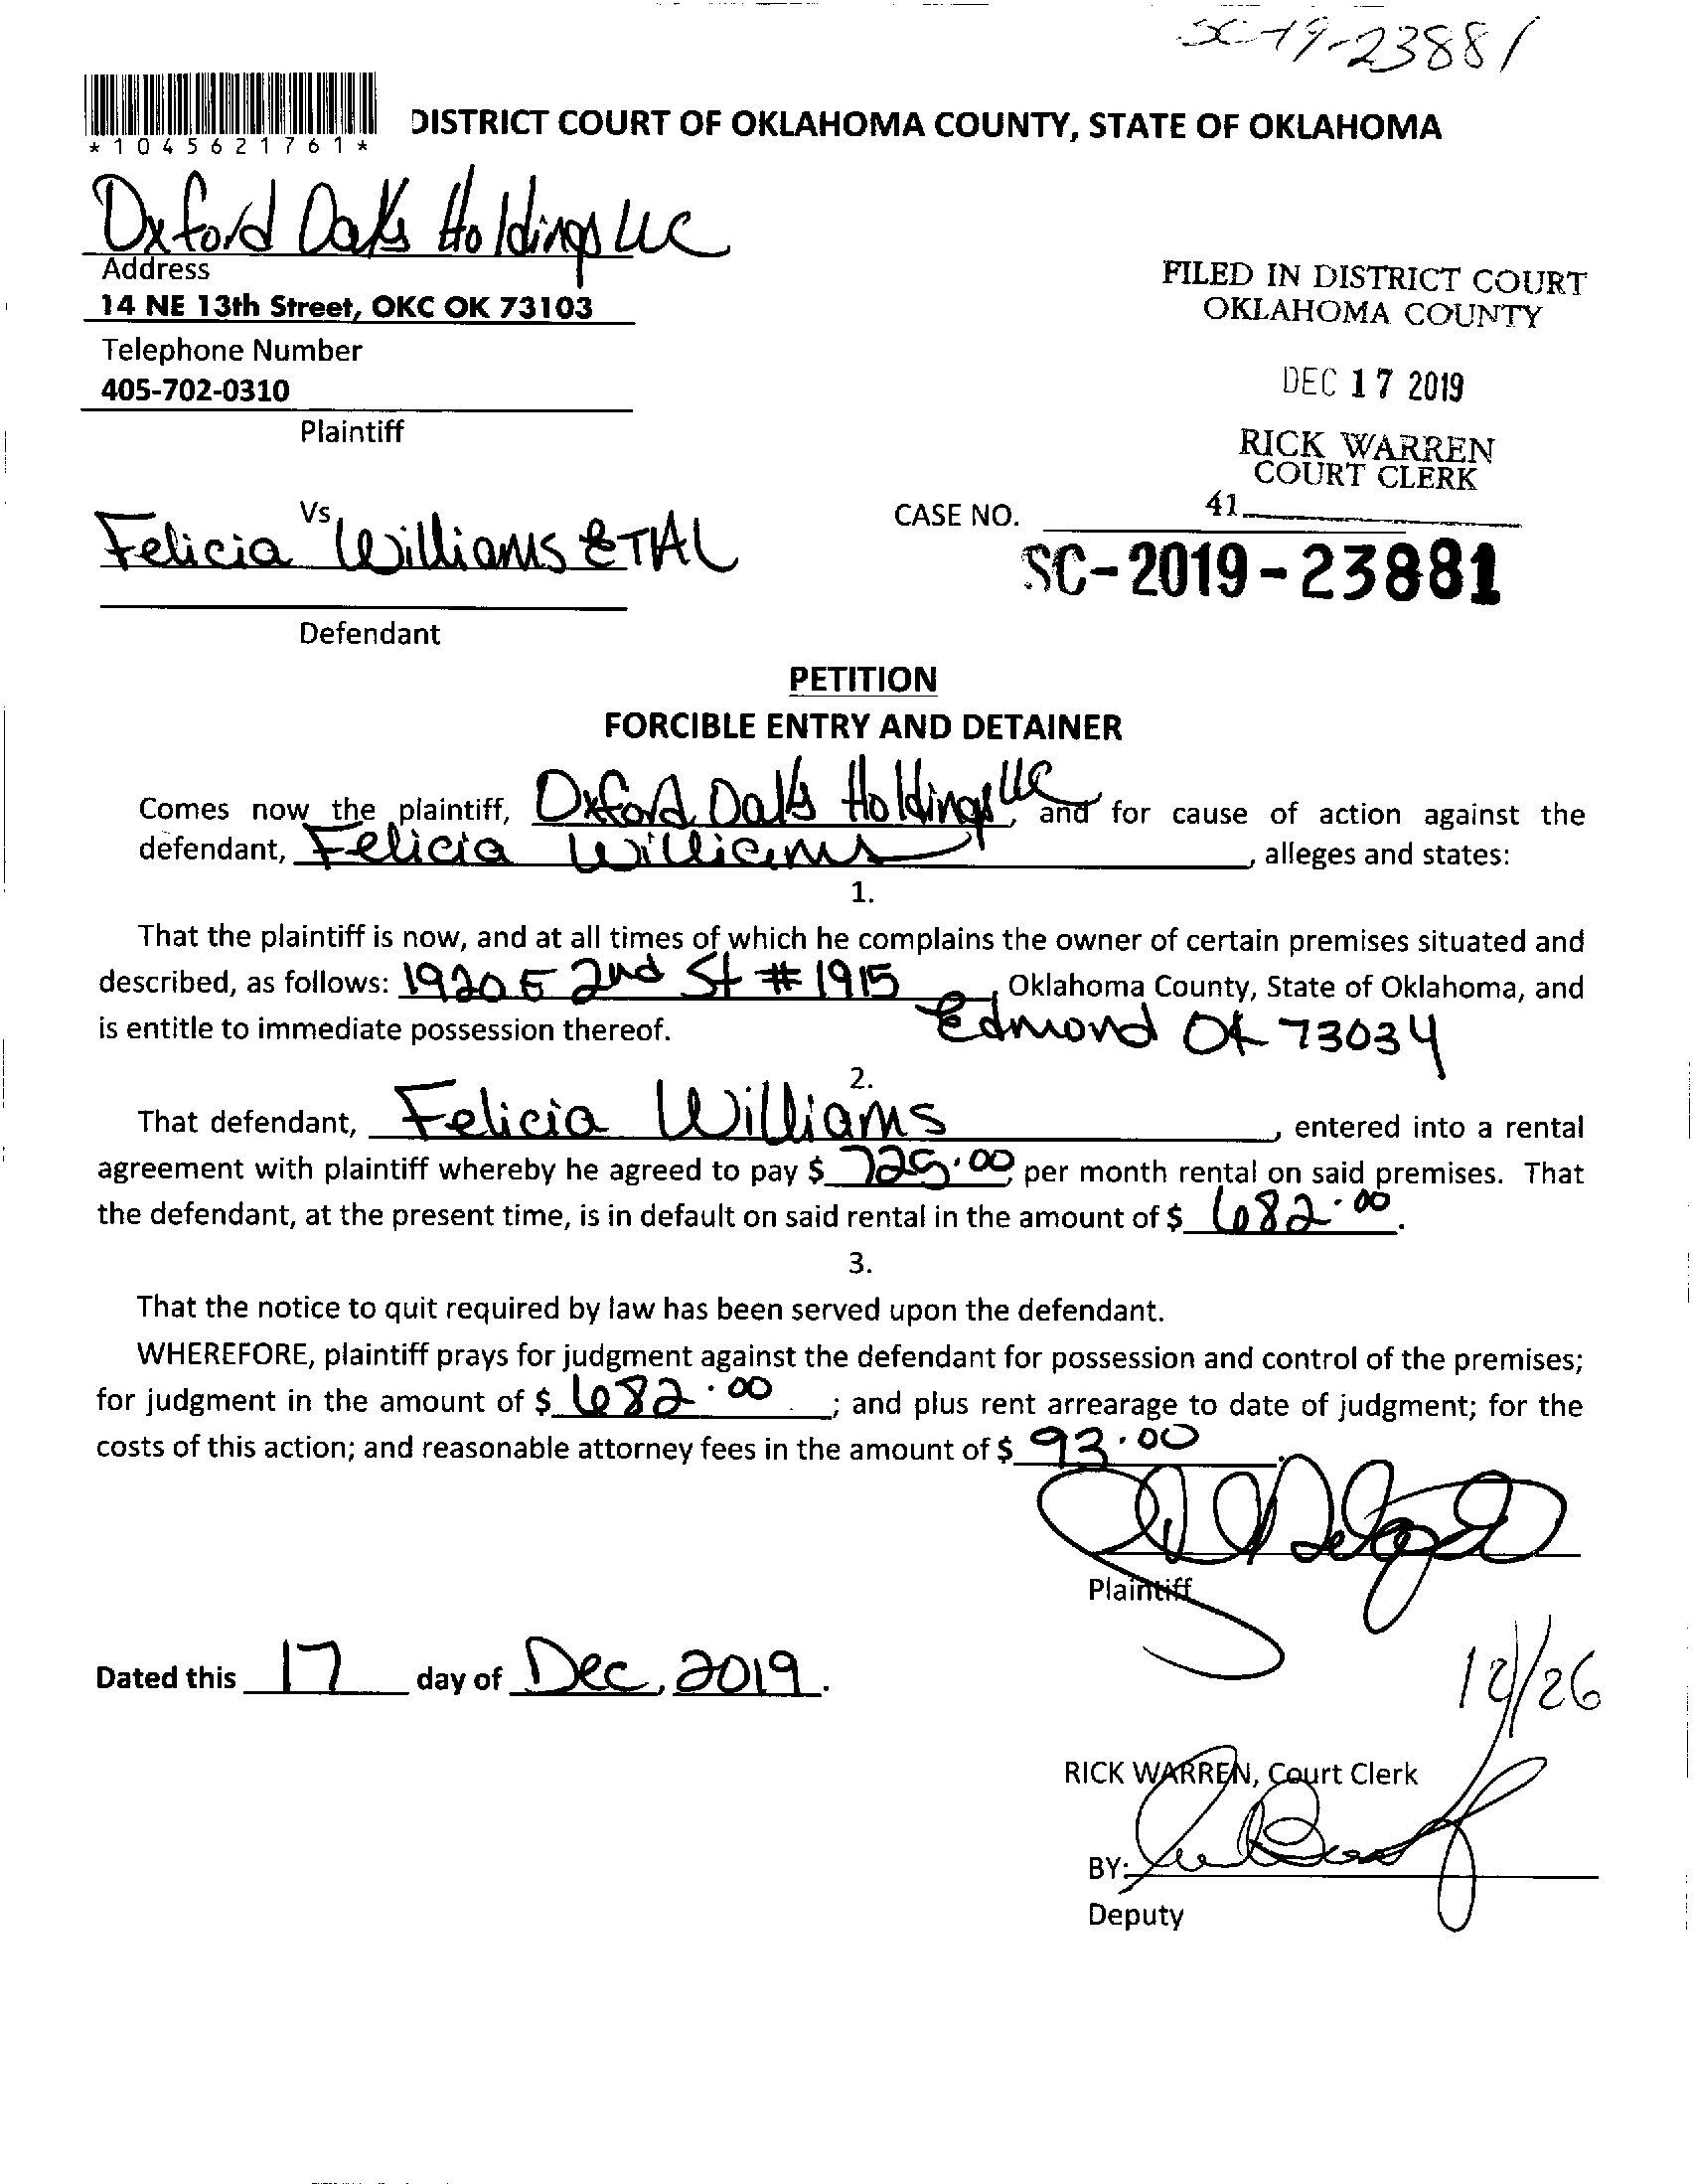 SC-19-23881
*1045621761*
DISTRICT COURT OF OKLAHOMA COUNTY, STATE OF OKLAHOMA
Oxford Oaks Holdings LLC
Address
14 NE 13th Street, OKC OK 73103
Telephone Number
405-702-0310
Plaintiff
FILED IN DISTRICT COURT
OKLAHOMA COUNTY
DEC 17 2019
RICK WARREN
COURT CLERK
41
Vs
Felicia Williams ETAL
Defendant
CASE NO.
SC-2019-23881
PETITION
FORCIBLE ENTRY AND DETAINER
Comes now the plaintiff, Oxford Oaks Holdings LLC, and for cause of action against the
defendant, Felicia Williams, alleges and states:
1.
That the plaintiff is now, and at all times of which he complains the owner of certain premises situated and
described, as follows: 1920 E 2nd St # 1915, Oklahoma County, State of Oklahoma, and
is entitle to immediate possession thereof. Edmond OK 73034
2.
That defendant, Felicia Williams, entered into a rental
agreement with plaintiff whereby he agreed to pay $ 725.00, per month rental on said premises. That
the defendant, at the present time, is in default on said rental in the amount of $ 682.00.
3.
That the notice to quit required by law has been served upon the defendant.
WHEREFORE, plaintiff prays for judgment against the defendant for possession and control of the premises;
for judgment in the amount of $ 682.00; and plus rent arrearage to date of judgment; for the
costs of this action; and reasonable attorney fees in the amount of $ 93.00.
Plaintiff
Dated this 17 day of Dec, 2019.
12/26
RICK WARREN, Court Clerk
BY:
Deputy